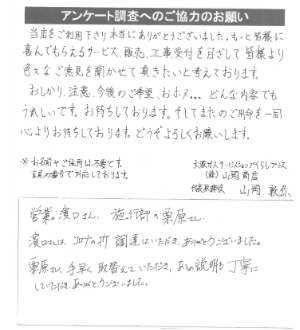 アンケート調査へのご協力のお願い
当店をご利用下さり本当にありがとうございました。もっと皆様に
喜んでもらえるサービス、販売、工事受付を目ざして皆様より
色々なご意見を聞かせて頂きたいと考えております。
おしかり、注意、今後のご希望、おホメ… どんな内容でも
うれしいです。お待ちしております。そしてまたのご用命を一同
心よりお待ちしております。どうぞよろしくお願いします。
※お名前やご住所は不要です。
(株)山岡商店
代表取締役 山岡
営業の濱口さん、施行部の栗原さん
濱口さんは、コロナの折 調達いただき、ありがとうございました。
栗原さん、手早く取替えていただき、あとの説明も丁寧に
していただきありがとうございました。